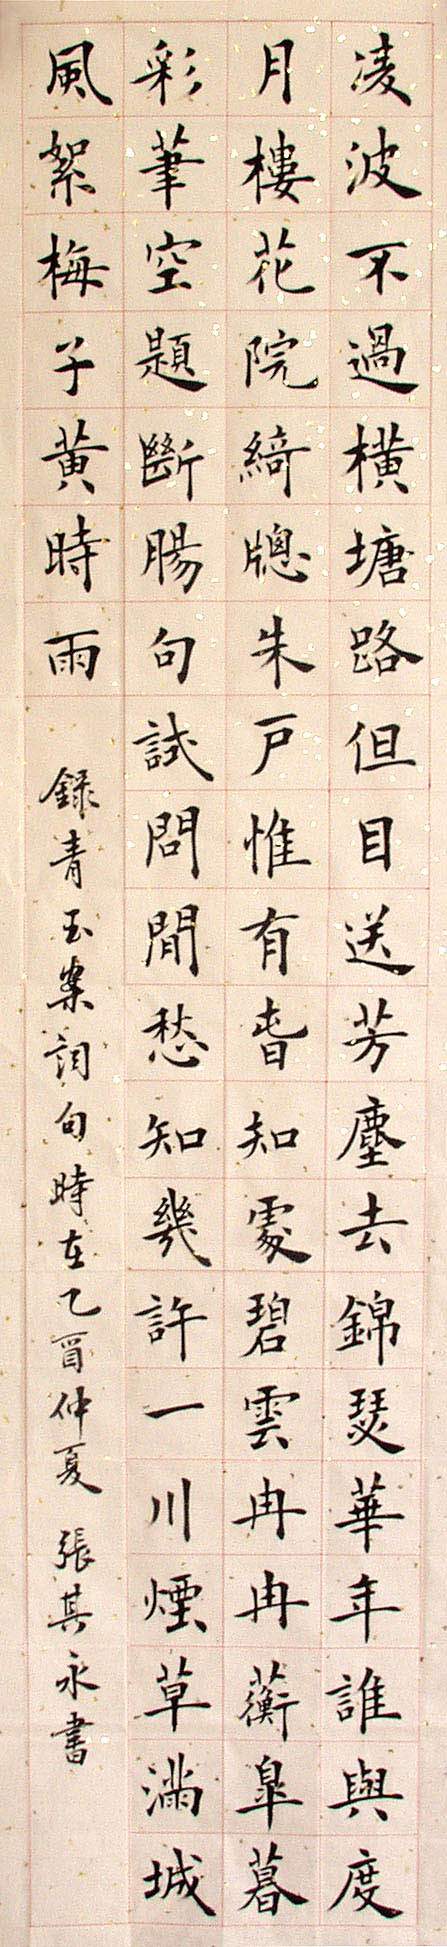 凌波不過橫塘路但目送芳塵去錦瑟華年誰與度
月樓花院綺牕朱戸惟有春知處碧雲冉冉蘅臯暮
彩筆空題斷腸句試問閒愁知幾許一川煙草滿城
風絮梅子黃時雨
録青玉案詞句時在乙酉仲夏 張其永書